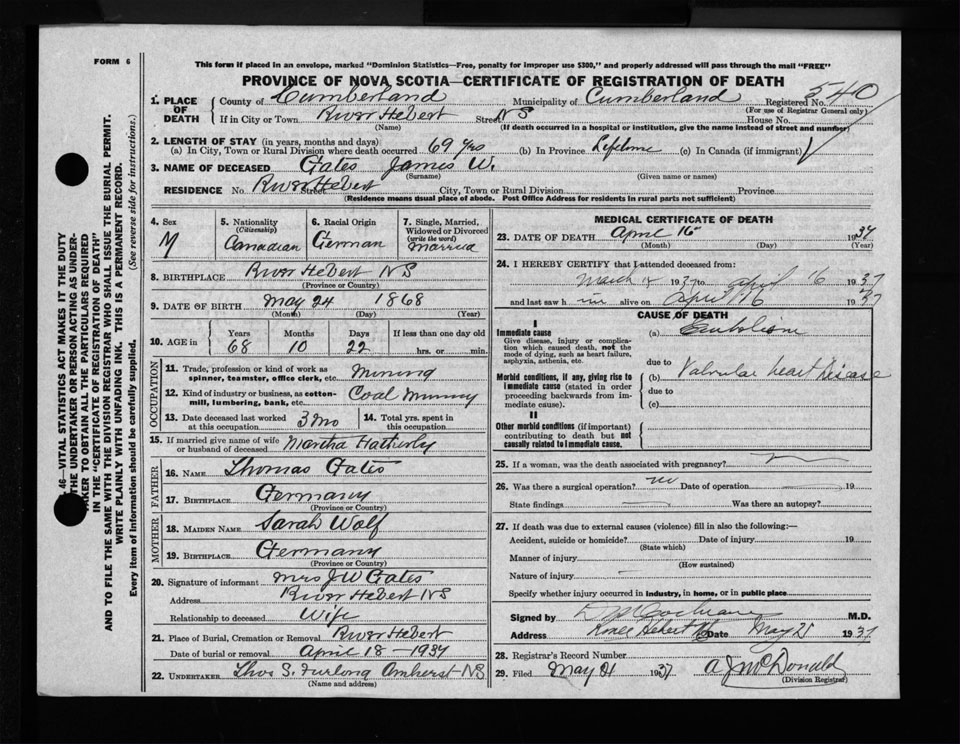 FORM 6
This form if placed in an envelope, marked "Dominion Statistics—Free, penalty for improper use $300," and properly addressed will pass through the mail "FREE"
PROVINCE OF NOVA SCOTIA—CERTIFICATE OF REGISTRATION OF DEATH
1. PLACE OF DEATH County of Cumberland Municipality of Cumberland Registered No. 540
(For use of Registrar General only)
If in City or Town River Hebert Street NS House No.
(Name) (If death occurred in a hospital or institution, give the name instead of street and number)
2. LENGTH OF STAY (in years, months and days)
(a) In City, Town or Rural Division where death occurred 69 yrs (b) In Province Lifetime (c) In Canada (if immigrant)
3. NAME OF DECEASED Gates James W.
(Surname) (Given name or names)
RESIDENCE No. River Hebert Street City, Town or Rural Division Province
(Residence means usual place of abode. Post Office Address for residents in rural parts not sufficient)
46—VITAL STATISTICS ACT MAKES IT THE DUTY
THE UNDERTAKER OR PERSON ACTING AS UNDER-
TAKER TO OBTAIN ALL THE PARTICULARS REQUIRED
IN THE "CERTIFICATE OF REGISTRATION OF DEATH"
AND TO FILE THE SAME WITH THE DIVISION REGISTRAR WHO SHALL ISSUE THE BURIAL PERMIT.
WRITE PLAINLY WITH UNFADING INK. THIS IS A PERMANENT RECORD.
Every item of information should be carefully supplied. (See reverse side for instructions.)
4. Sex M
5. Nationality (Citizenship) Canadian
6. Racial Origin German
7. Single, Married, Widowed or Divorced (write the word) Married
8. BIRTHPLACE River Hebert NS
(Province or Country)
9. DATE OF BIRTH May 24 1868
(Month) (Day) (Year)
10. AGE in Years 68 Months 10 Days 22 If less than one day old hrs. or min.
OCCUPATION
11. Trade, profession or kind of work as spinner, teamster, office clerk, etc. Mining
12. Kind of industry or business, as cotton-mill, lumbering, bank, etc. Coal Mining
13. Date deceased last worked at this occupation 3 mo
14. Total yrs. spent in this occupation
15. If married give name of wife or husband of deceased Martha Hatherly
FATHER
16. NAME Thomas Gates
17. BIRTHPLACE Germany
(Province or Country)
MOTHER
18. MAIDEN NAME Sarah Wolf
19. BIRTHPLACE Germany
(Province or Country)
20. Signature of informant Mrs J W Gates
Address River Hebert NS
Relationship to deceased Wife
21. Place of Burial, Cremation or Removal River Hebert
Date of burial or removal April 18 - 1937
22. UNDERTAKER Thos S. Furlong Amherst NS
(Name and address)
MEDICAL CERTIFICATE OF DEATH
23. DATE OF DEATH April 16 1937
(Month) (Day) (Year)
24. I HEREBY CERTIFY that I attended deceased from:
March 1937 to April 16 1937
and last saw him alive on April 16 1937
CAUSE OF DEATH
I
Immediate cause (a) Embolism
Give disease, injury or complica-
tion which caused death, not the
mode of dying, such as heart failure,
asphyxia, asthenia, etc.
due to
Morbid conditions, if any, giving rise to (b) Valvular heart disease
immediate cause (stated in order
proceeding backwards from im-
mediate cause).
due to
(c)
II
Other morbid conditions (if important)
contributing to death but not
causally related to immediate cause.
25. If a woman, was the death associated with pregnancy?
26. Was there a surgical operation? no Date of operation 19
State findings Was there an autopsy?
27. If death was due to external causes (violence) fill in also the following:—
Accident, suicide or homicide? Date of injury 19
(State which)
Manner of injury
(How sustained)
Nature of injury
Specify whether injury occurred in industry, in home, or in public place
Signed by Cochrane M.D.
Address River Hebert NS Date May 21 1937
28. Registrar's Record Number
29. Filed May 21 1937 A J McDonald
(Division Registrar)